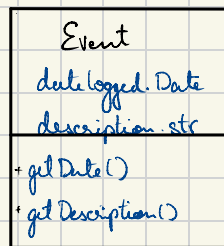 Event
datelogged: Date
description: str
+ getDate()
+ getDescription()